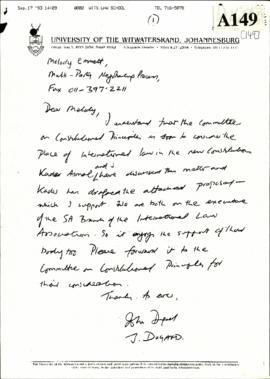 Sep. 17 '93 14:09 0002 WITS LAW SCHOOL TEL 716-5078
(1)
A149
[149]
UNIVERSITY OF THE WITWATERSRAND, JOHANNESBURG
Melody Emmett,
Multi-Party Negotiating Process,
Fax 011-397-2211
Dear Melody,
I understand that the Committee
on Constitutional Principles is soon to consider the
place of International law in the new Constitution
Kader Asmal and I have discussed this matter and
Kader has drafted the attached proposal -
which I support. We are both on the executive
of the SA Branch of the International Law
Association. So it enjoys the support of that
body too. Please forward it to the
Committee on Constitutional Principles for
their consideration.
Thanks. As ever,
John Dugard
J. DUGARD